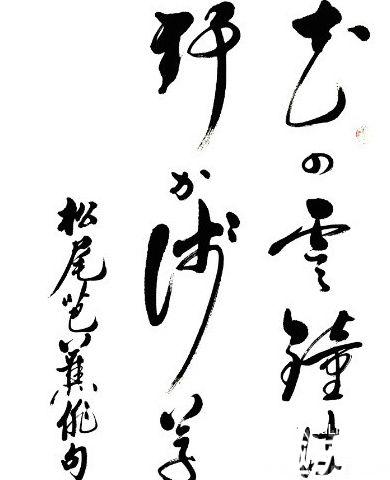 花の雲鐘は
野か浅草
松尾芭蕉俳句